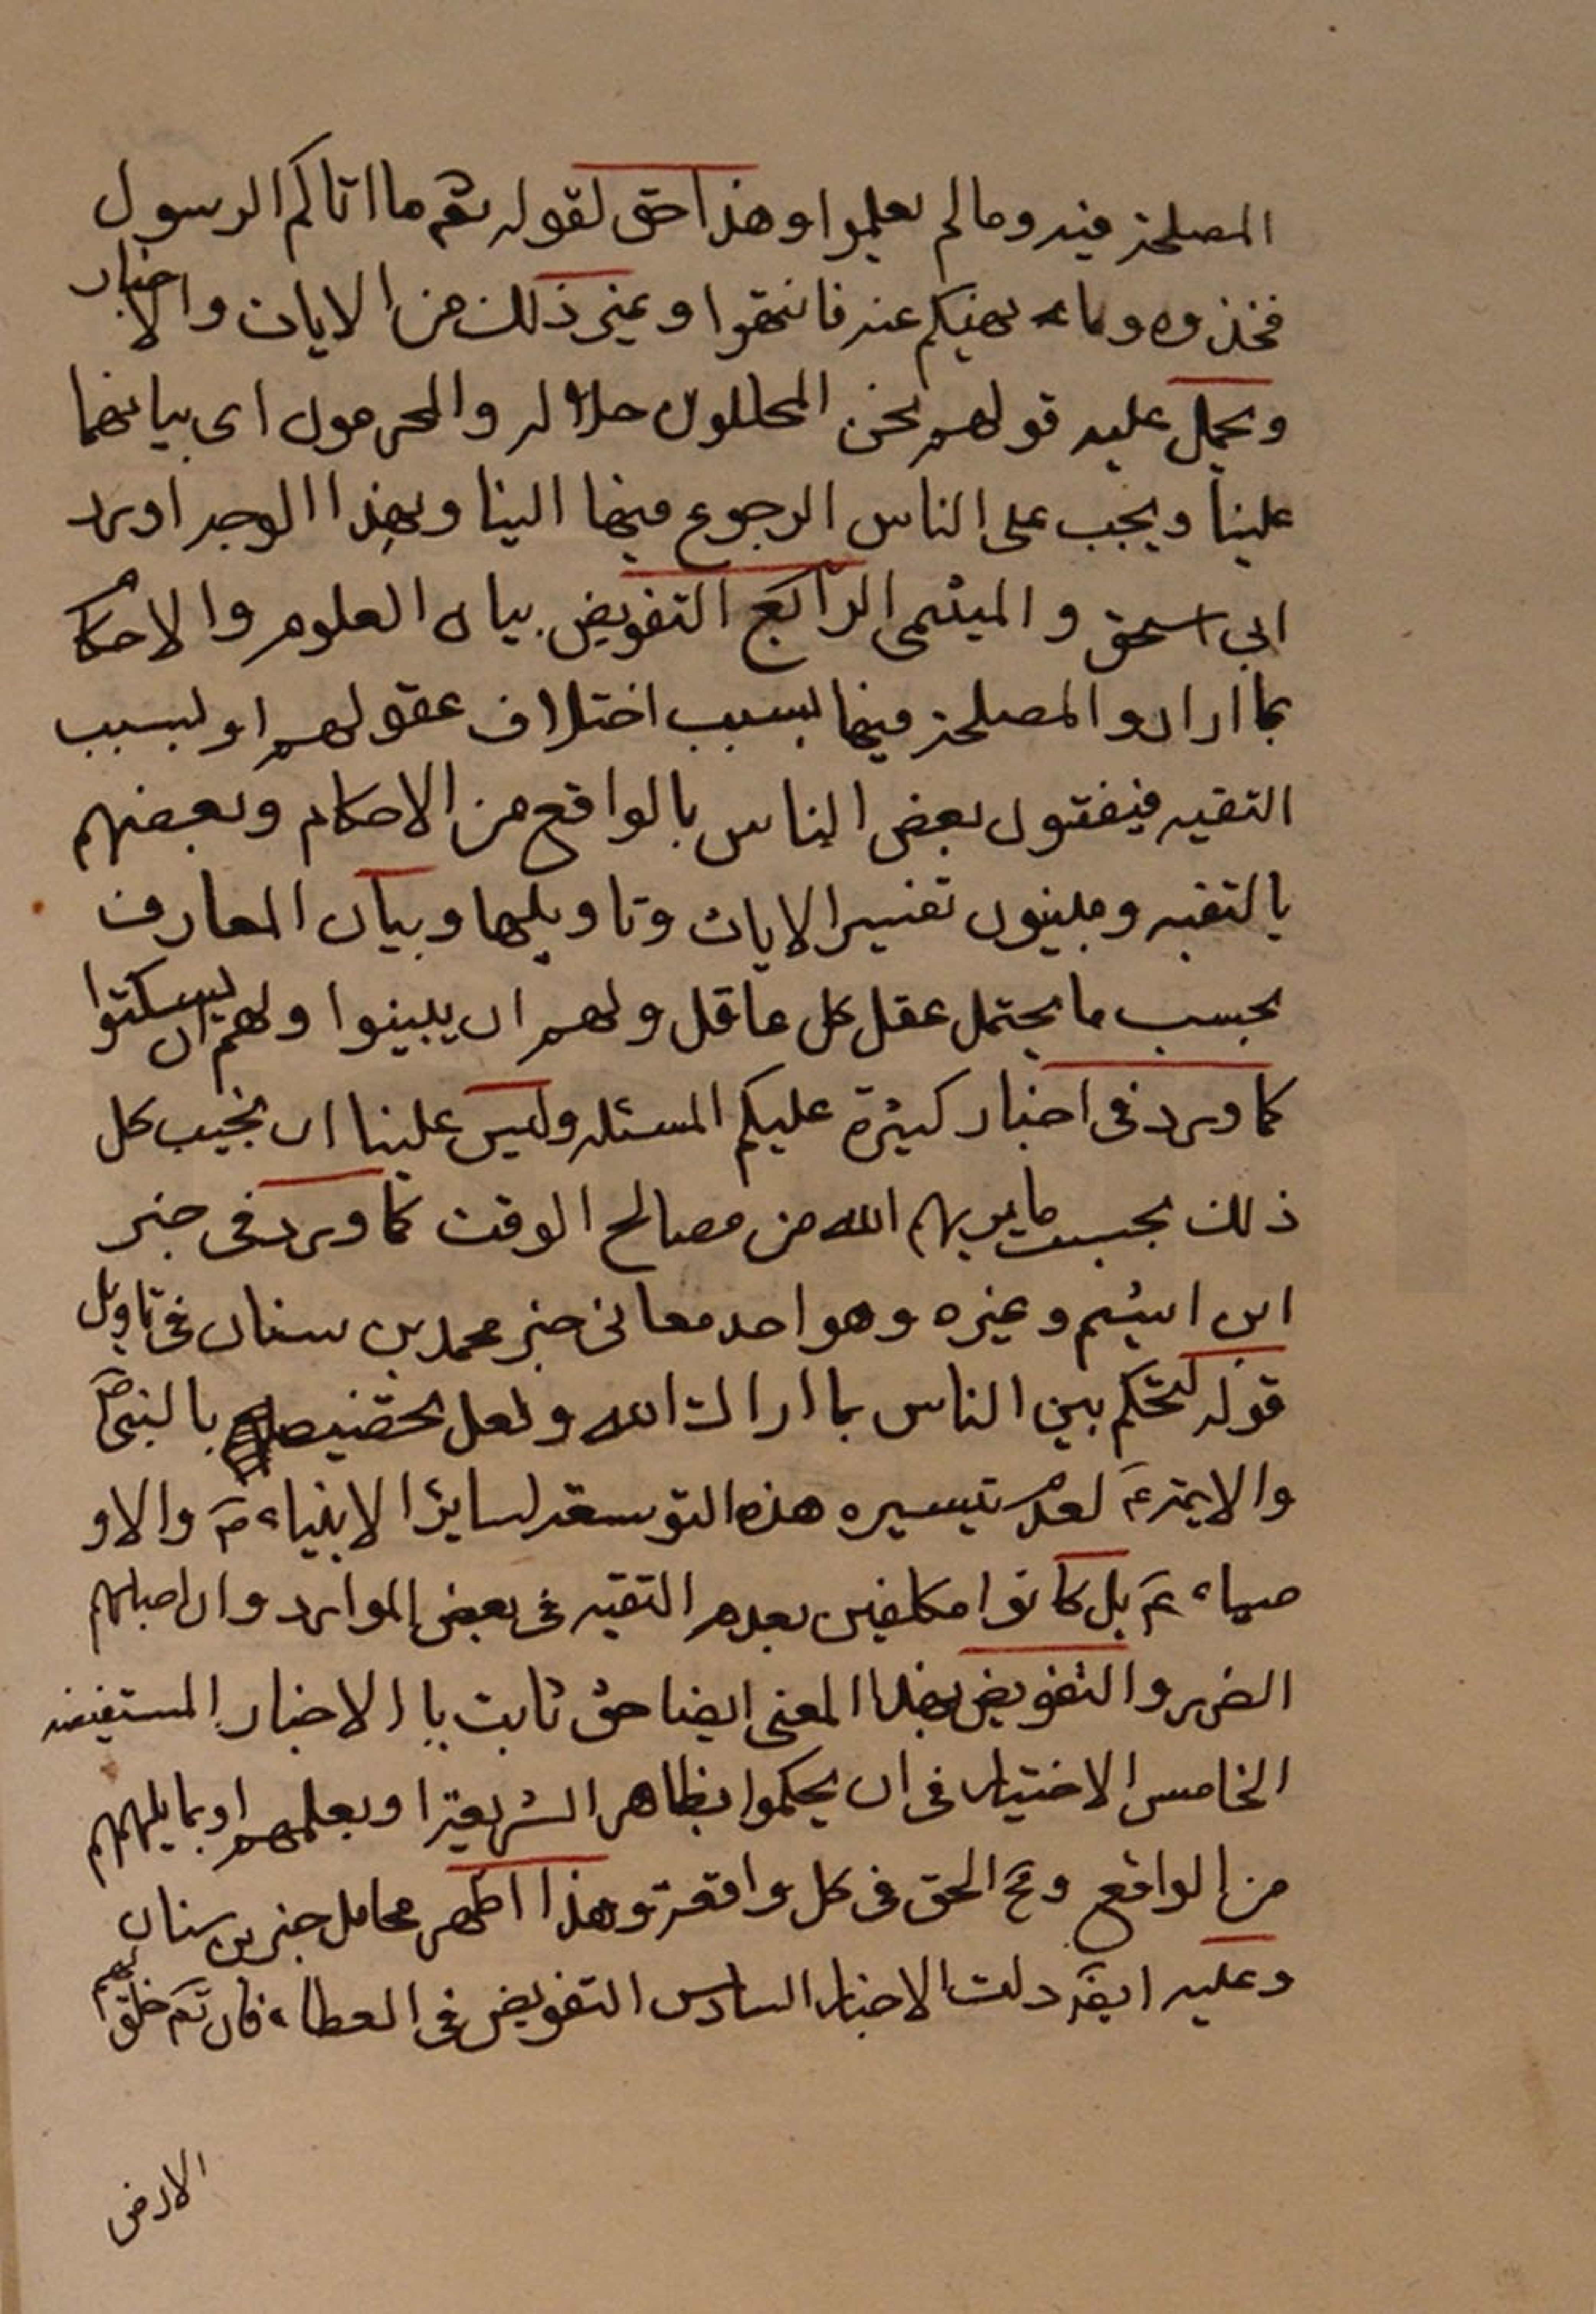 المصلحة فيه وما لم يعلموا وهذا حق لقوله تعم ما اتاكم الرسول
فخذوه وما نهيكم عنه فانتهوا وغير ذلك من الايات والاخبار
ويحمل عليه قولهم نحن المحللون حلاله والمحرمون اى بيانهما
علينا ويجب على الناس الرجوع فيها الينا وبهذا الوجه اورد
ابي اسحق والميثمى الرابع التفويض بيان العلوم والاحكام
بما ارادو المصلحة فيها بسبب اختلاف عقولهم او لسبب
التقيه فيفتون بعض الناس بالواقع من الاحكام وبعضهم
بالتقيه ويبينون تفسير الايات وتاويلها وبيان المعارف
بحسب ما يحتمل عقل كل عاقل ولهم ان يبينوا ولهم ان يسكتوا
كما ورد فى اخبار كثيرة عليكم المسئله وليس علينا ان نجيب كل
ذلك بحسب ما يريهم الله من مصالح الوقت كما ورد فى خبر
ابن اشيم وغيره وهو احد معانى خبر محمد بن سنان فى تاويل
قوله لتحكم بين الناس بما اراك الله ولعل تخصيصه بالنبى ص
والايمة ع لعدم تيسيره هذه التوسعة لساير الانبياء ع والاو
صياء ع بل كانوا مكلفين بعدم التقيه فى بعض الموارد وان اصابهم
الضرر والتفويض بهذا المعنى ايضا حق ثابت با الاخبار المستفيضه
الخامس الاختيار فى ان يحكموا بظاهر الشريعة او بعلمهم او بما يلهمهم
من الواقع ومخ الحق فى كل واقعة وهذا اظهر محامل خبر بن سنان
وعليه ايضا دلت الاخبار السادس التفويض فى العطاء فان تعم خلق لهم
الارض